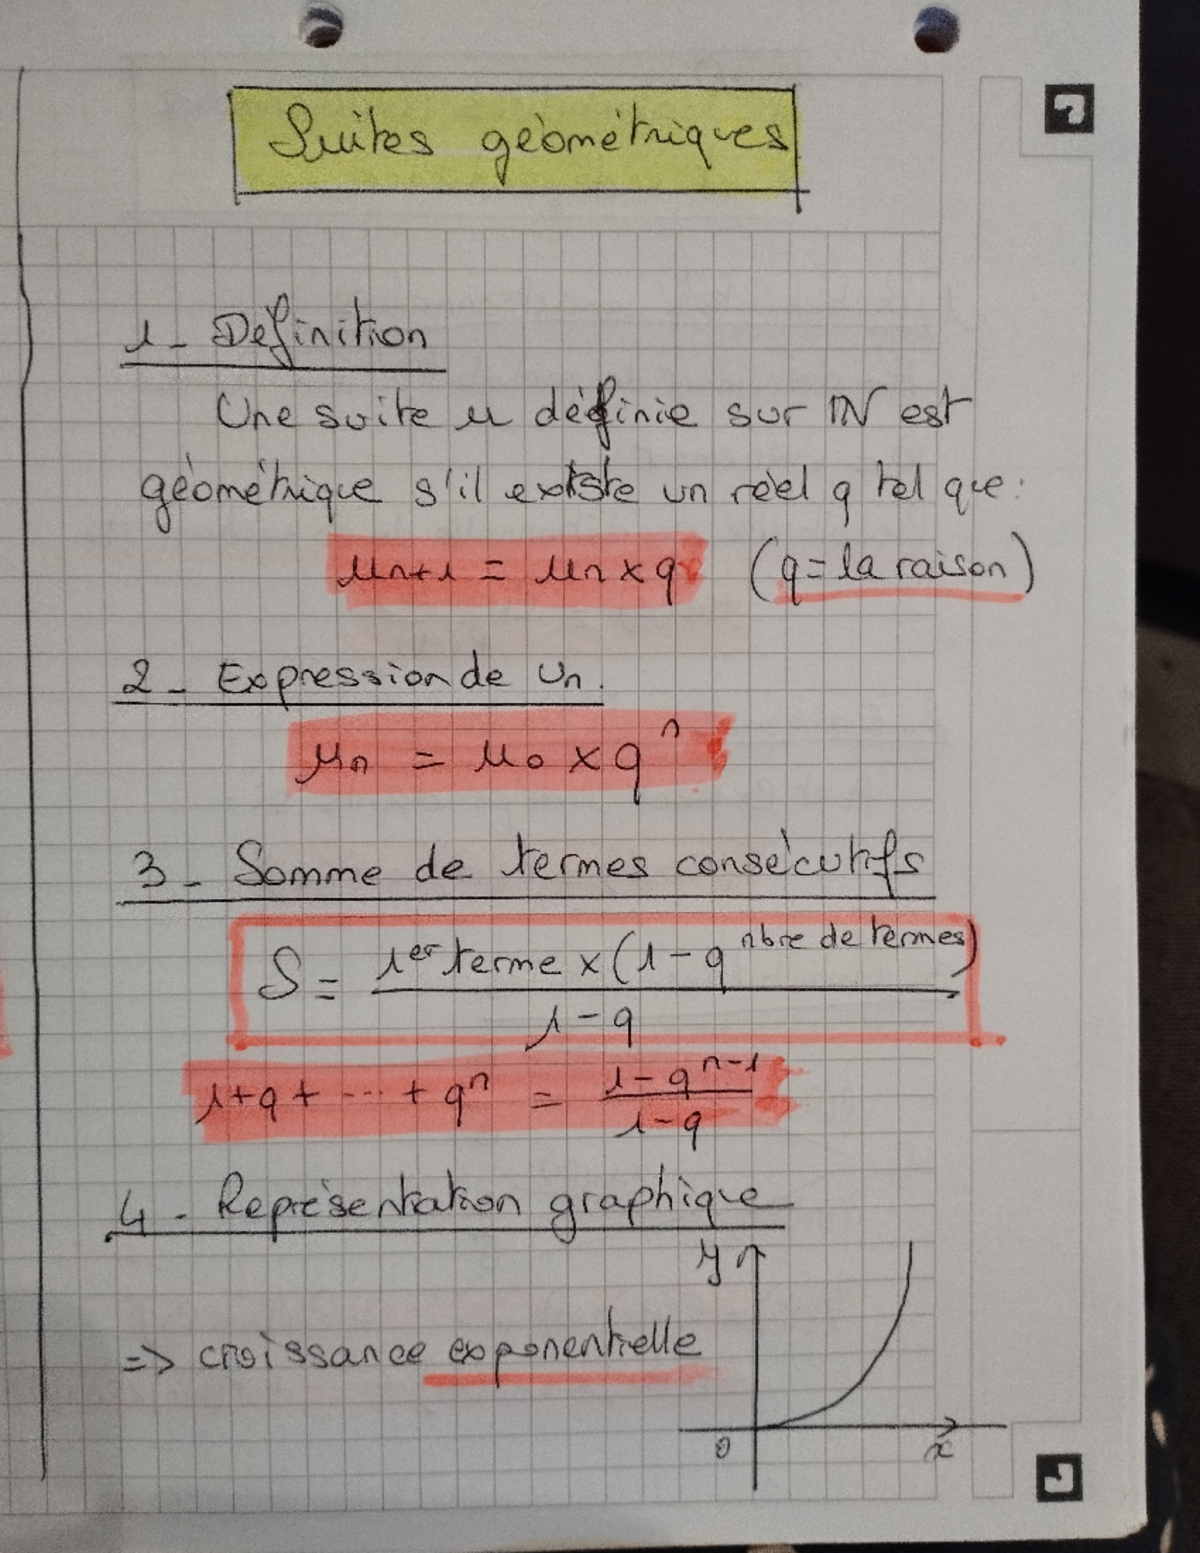 Suites géométriques
1- Définition
Une suite u définie sur ℕ est
géométrique s'il existe un réel q tel que :
uₙ₊₁ = uₙ × q (q = la raison)
2- Expression de Uₙ.
uₙ = u₀ × qⁿ
3- Somme de termes consécutifs
S = 1er terme × (1 - q^nbre de termes) / 1 - q
1 + q + ... + qⁿ = 1 - qⁿ⁻¹ / 1 - q
4- Représentation graphique
y
=> croissance exponentielle
0 x